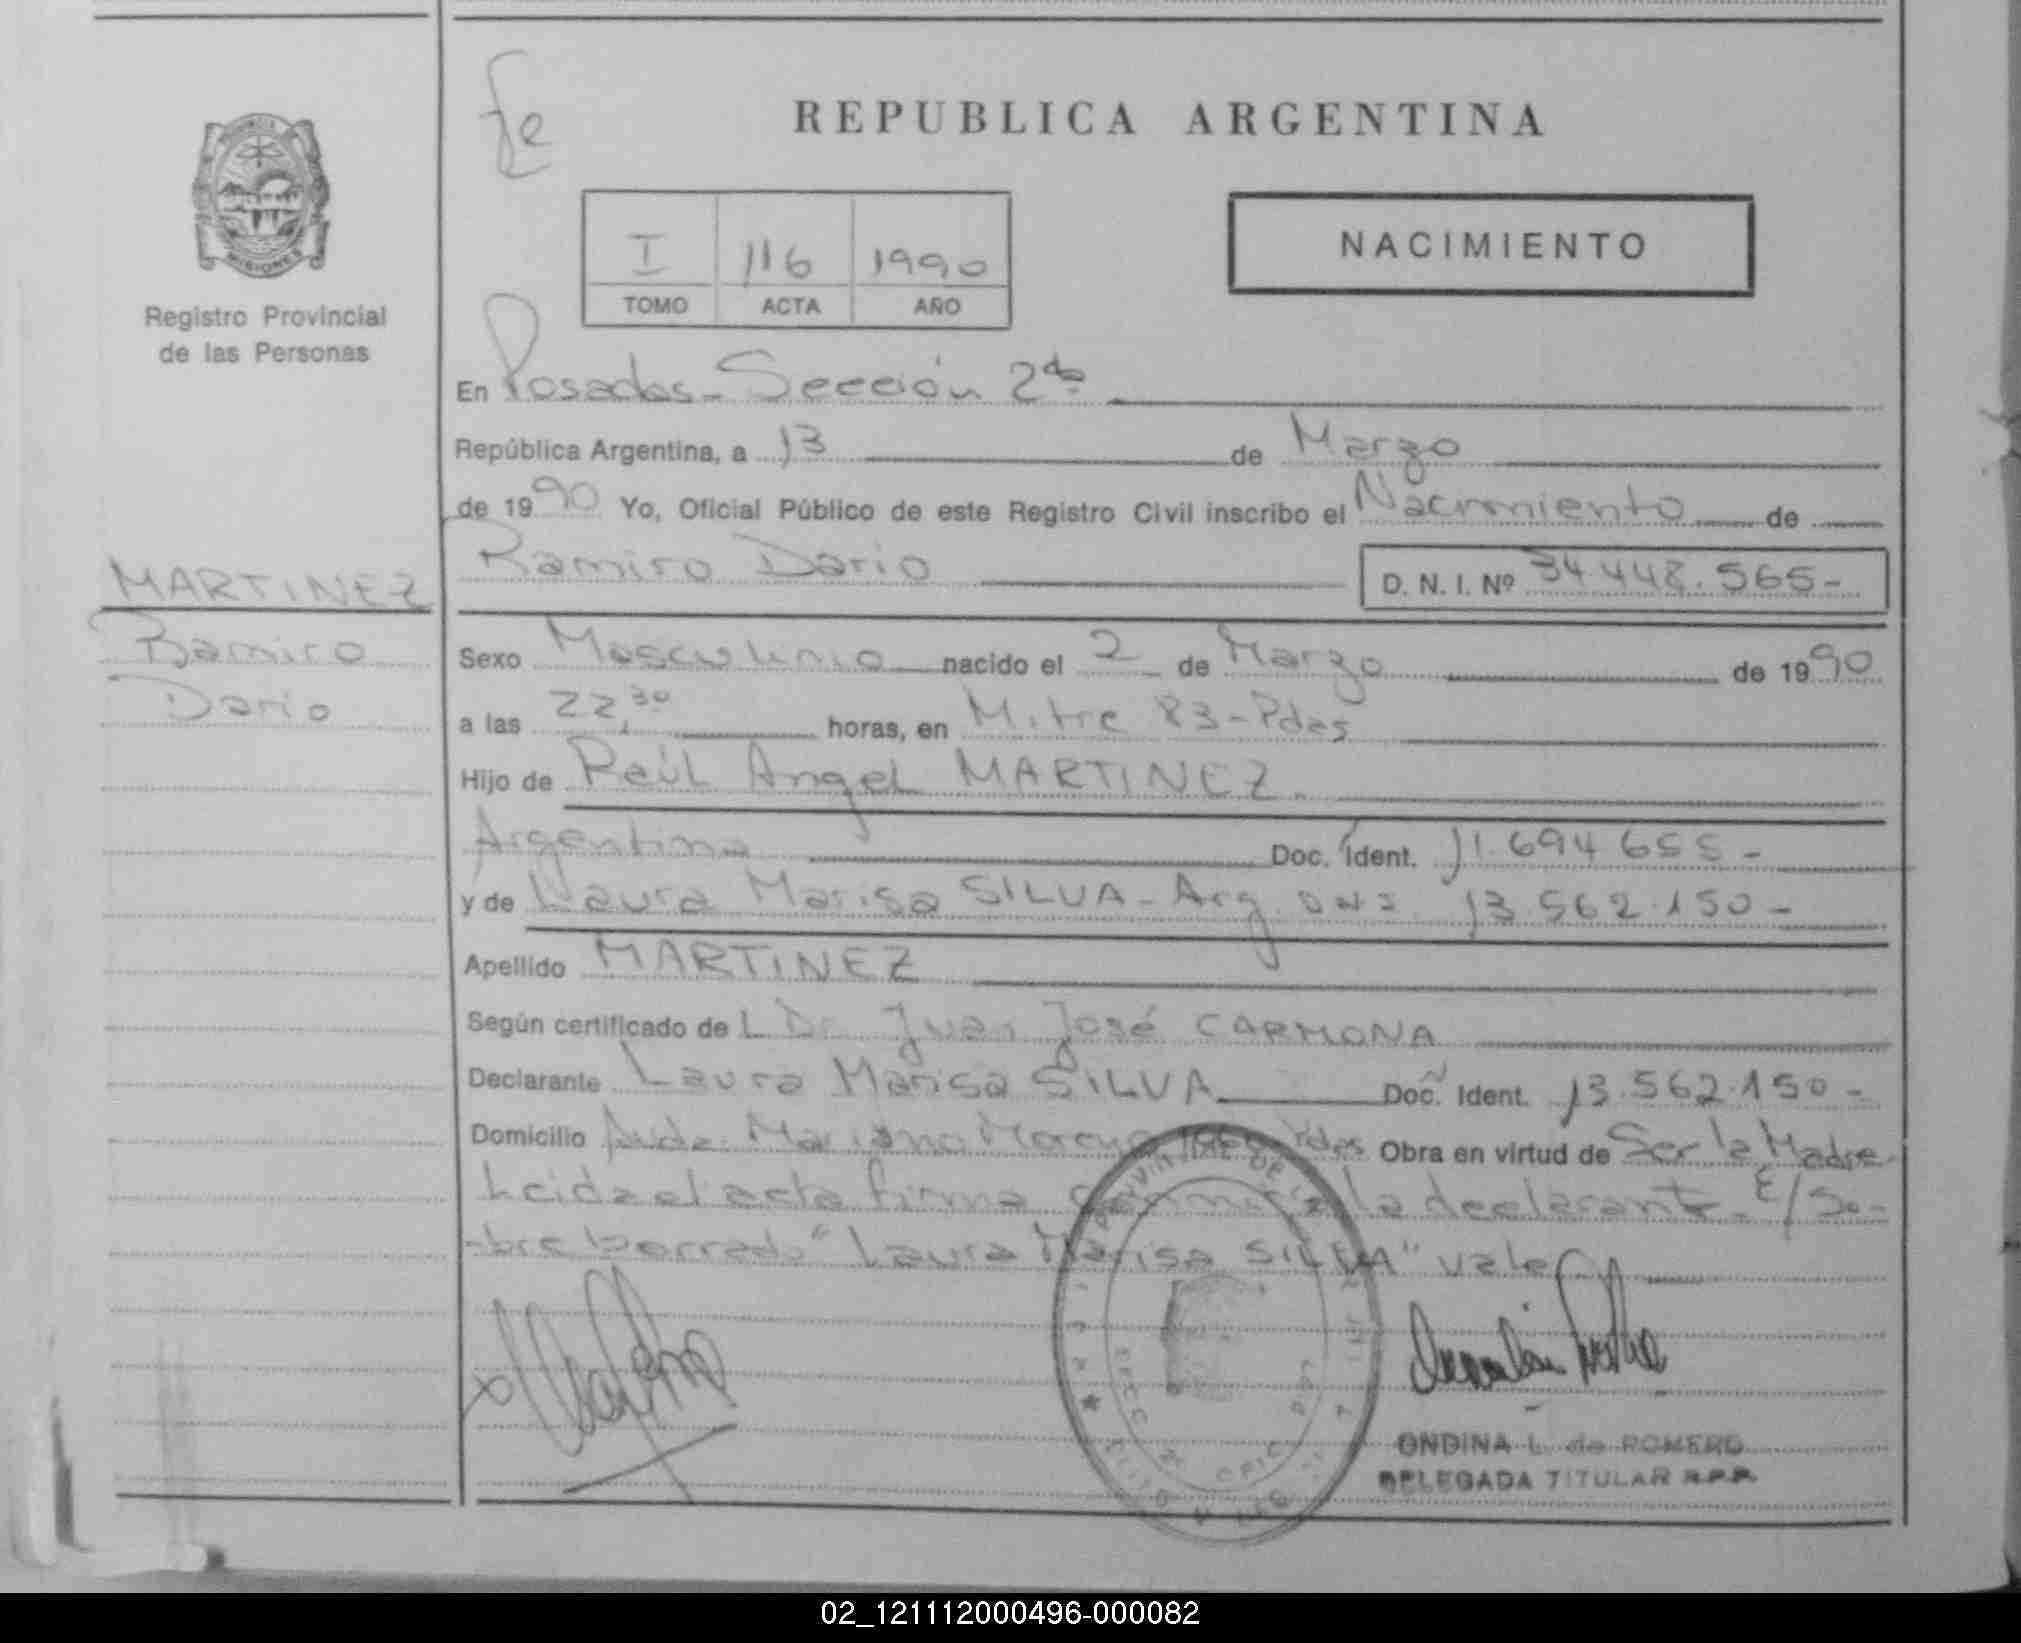 REPUBLICA ARGENTINA
MISIONES
Registro Provincial
de las Personas
I 116 1990
TOMO ACTA AÑO
NACIMIENTO
En Posadas - Sección 2da
República Argentina, a 13 de Marzo
de 1990 Yo, Oficial Público de este Registro Civil inscribo el Nacimiento de
Ramiro Dario D. N. I. Nº 34.448.565-
MARTINEZ
Ramiro
Dario
Sexo Masculino nacido el 2 de Marzo de 1990
a las 22,30 horas, en Mitre 83 - Pdas
Hijo de Raúl Angel MARTINEZ
Argentino Doc. Ident. 11.694.655-
y de Laura Marisa SILVA - Arg. DNI 13.562.150-
Apellido MARTINEZ
Según certificado de L Dr. Juan José CARMONA
Declarante Laura Marisa SILVA Doc. Ident. 13.562.150-
Domicilio Avda. Mariano Moreno Pdas Obra en virtud de Ser la Madre-
Leida el acta firma la declarante. E/So-
-bre borrado "Laura Marisa SILVA" vale
ONDINA L. de ROMERO
DELEGADA TITULAR R.P.P.
02_121112000496-000082